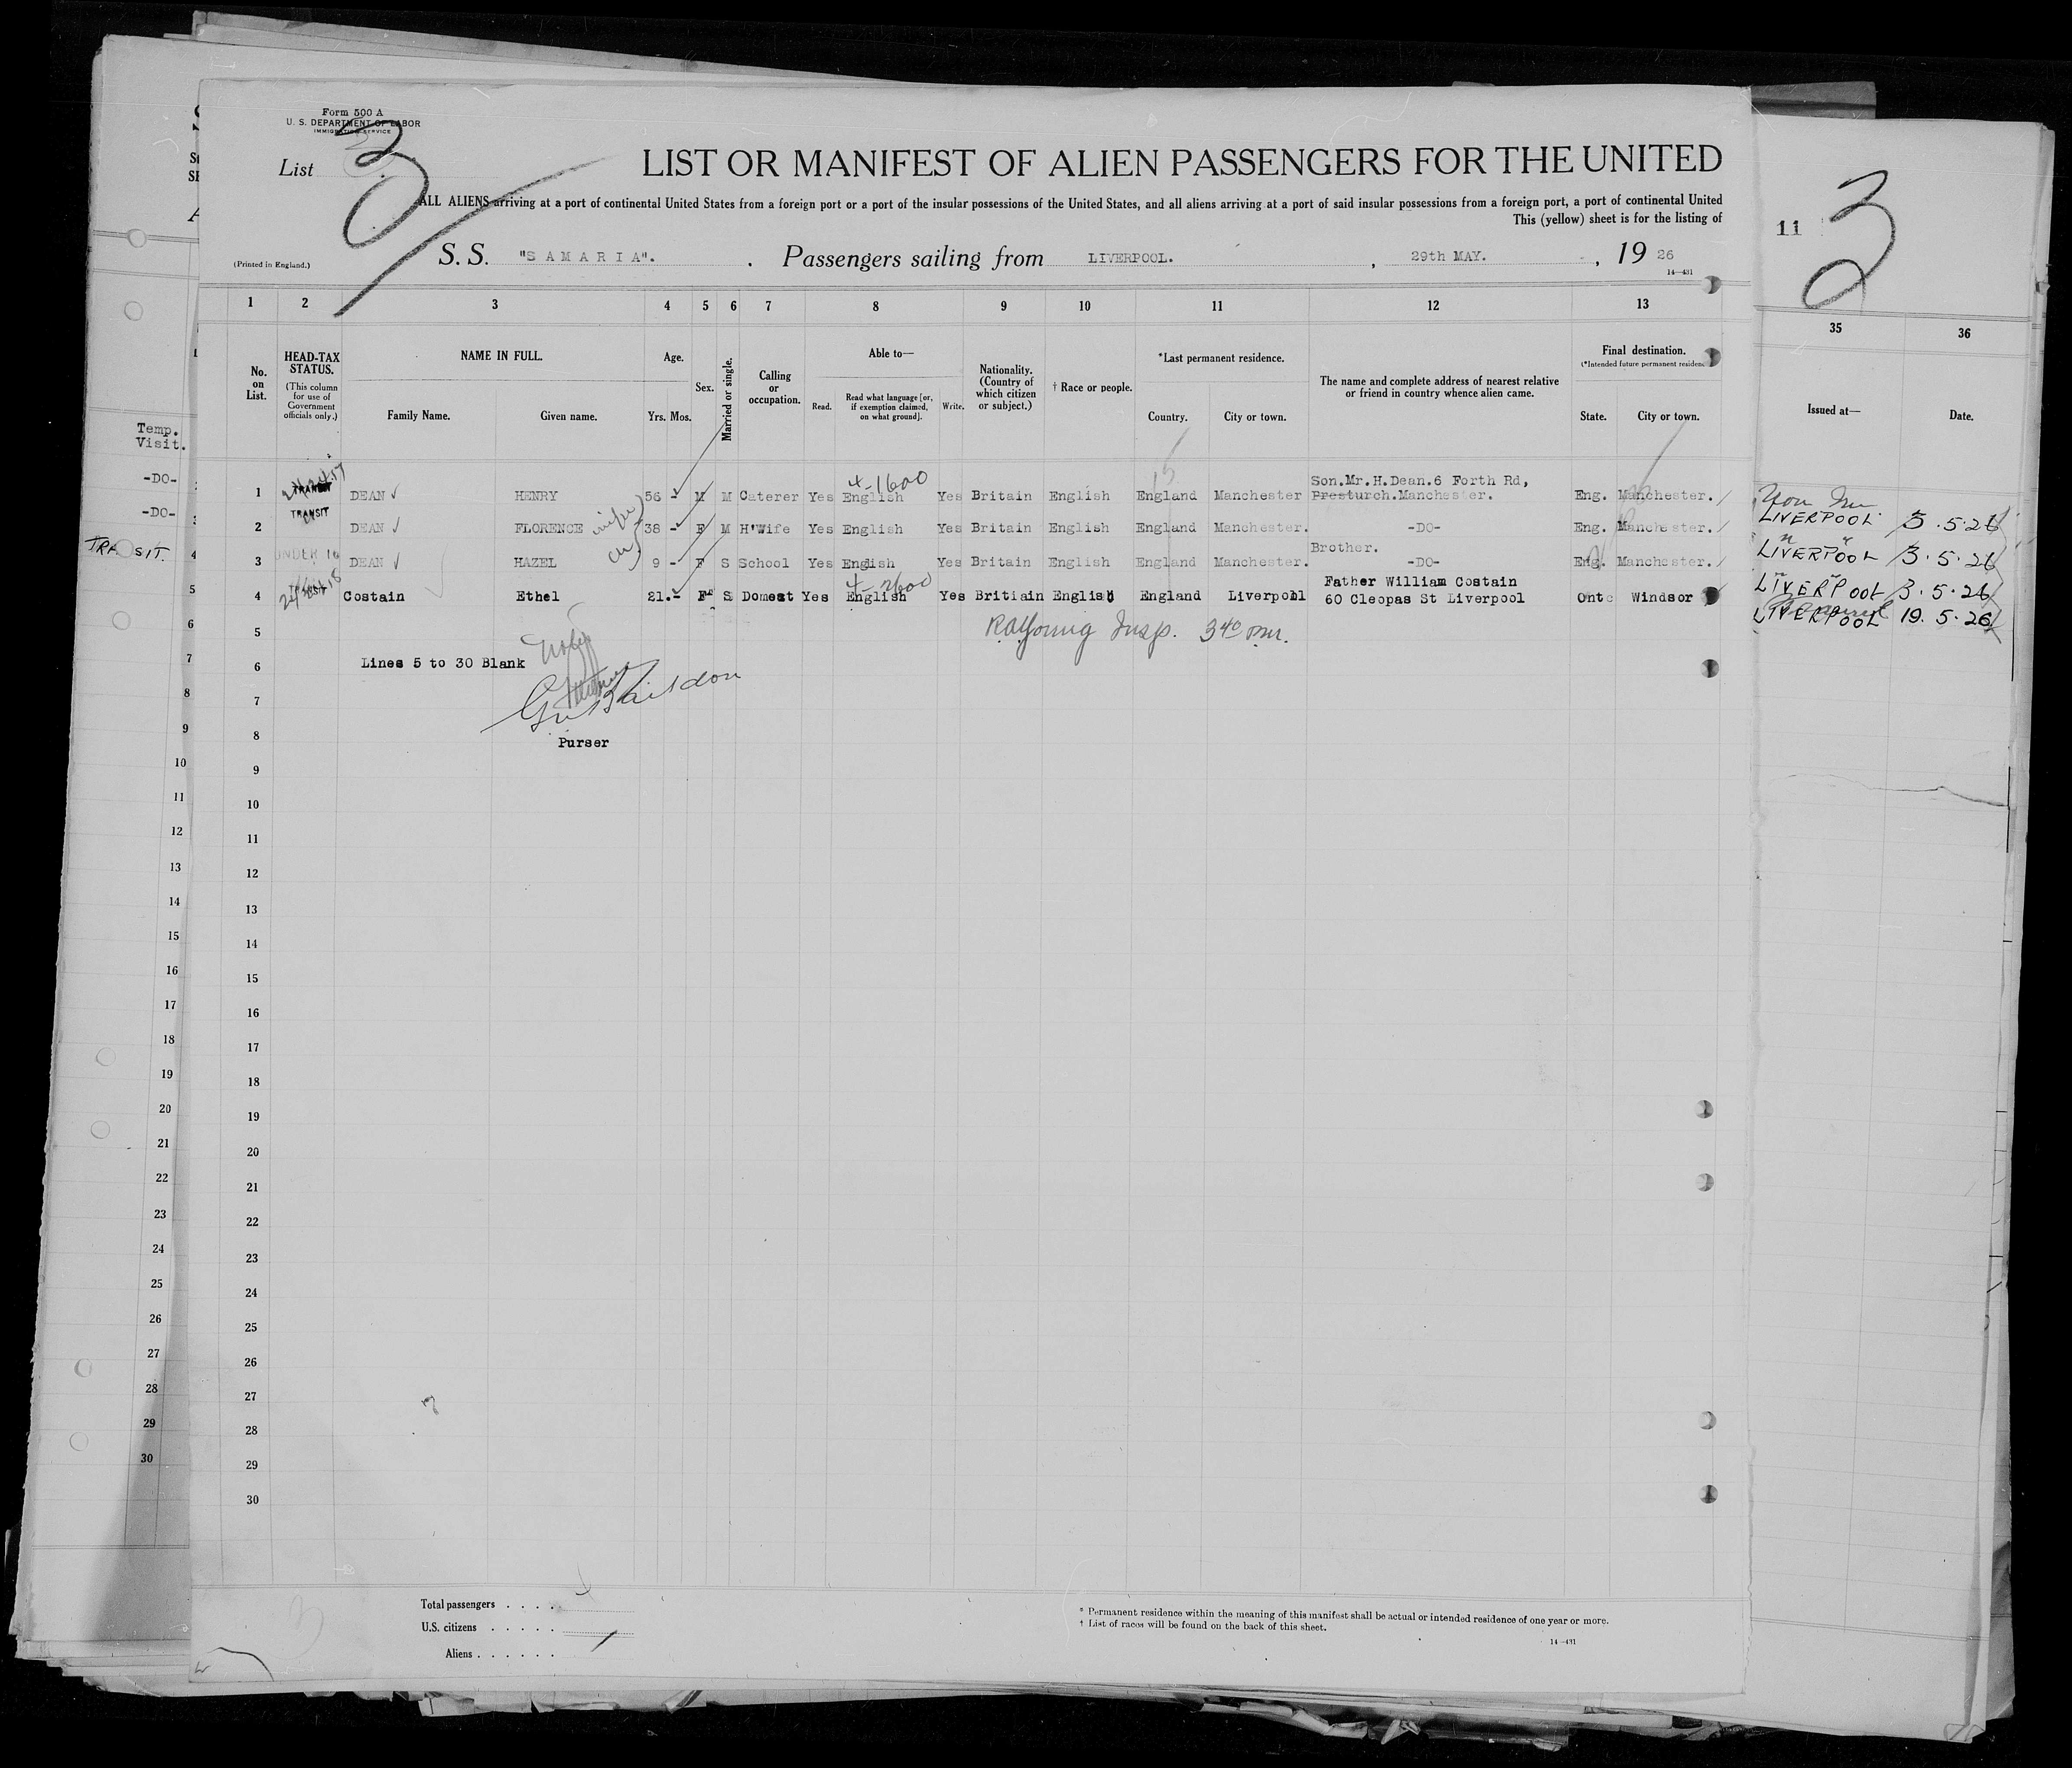 Form 500 A
U. S. DEPARTMENT OF LABOR
IMMIGRATION SERVICE
List 3
LIST OR MANIFEST OF ALIEN PASSENGERS FOR THE UNITED
ALL ALIENS arriving at a port of continental United States from a foreign port or a port of the insular possessions of the United States, and all aliens arriving at a port of said insular possessions from a foreign port, a port of continental United
This (yellow) sheet is for the listing of
(Printed in England.)
S. S. "SAMARIA". Passengers sailing from LIVERPOOL. , 29th MAY. , 19 26
14—431
11 3
1 2 3 4 5 6 7 8 9 10 11 12 13
35 36
No. on List.
HEAD-TAX STATUS.
(This column for use of Government officials only.)
NAME IN FULL.
Family Name. Given name.
Age.
Yrs. Mos.
Sex.
Married or single.
Calling or occupation.
Able to—
Read. Read what language [or, if exemption claimed, on what ground]. Write.
Nationality. (Country of which citizen or subject.)
† Race or people.
*Last permanent residence.
Country. City or town.
The name and complete address of nearest relative or friend in country whence alien came.
Final destination.
(*Intended future permanent residence
State. City or town.
Issued at— Date.
Temp.
Visit.
-DO-
-DO-
4-1600
Son.Mr.H.Dean.6 Forth Rd,
1 TRANSIT DEAN HENRY 56 - M M Caterer Yes English Yes Britain English England Manchester Presturch.Manchester. Eng. Manchester.
2 TRANSIT DEAN FLORENCE wife 38 - F M H'Wife Yes English Yes Britain English England Manchester. -DO- Eng. Manchester.
Brother.
3 UNDER 16 DEAN HAZEL ch 9 - F S School Yes English Yes Britain English England Manchester. -DO- Eng. Manchester.
4-2600
Father William Costain
4 TRANSIT Costain Ethel 21.- F S Domest Yes English Yes Britiain English England Liverpool 60 Cleopas St Liverpool Ont Windsor
LIVERPOOL 3.5.26
LIVERPOOL 3.5.26
LIVERPOOL 3.5.26
LIVERPOOL 19.5.26
TRANSIT.
5
R A Young Insp. 3 40 pm.
6 Lines 5 to 30 Blank
7
8
Purser
9
10
11
12
13
14
15
16
17
18
19
20
21
22
23
24
25
26
27
28
29
30
4
5
6
7
8
9
10
11
12
13
14
15
16
17
18
19
20
21
22
23
24
25
26
27
28
29
30
Total passengers . . . .
U.S. citizens . . . . .
Aliens . . . . . .
* Permanent residence within the meaning of this manifest shall be actual or intended residence of one year or more.
† List of races will be found on the back of this sheet.
14—431